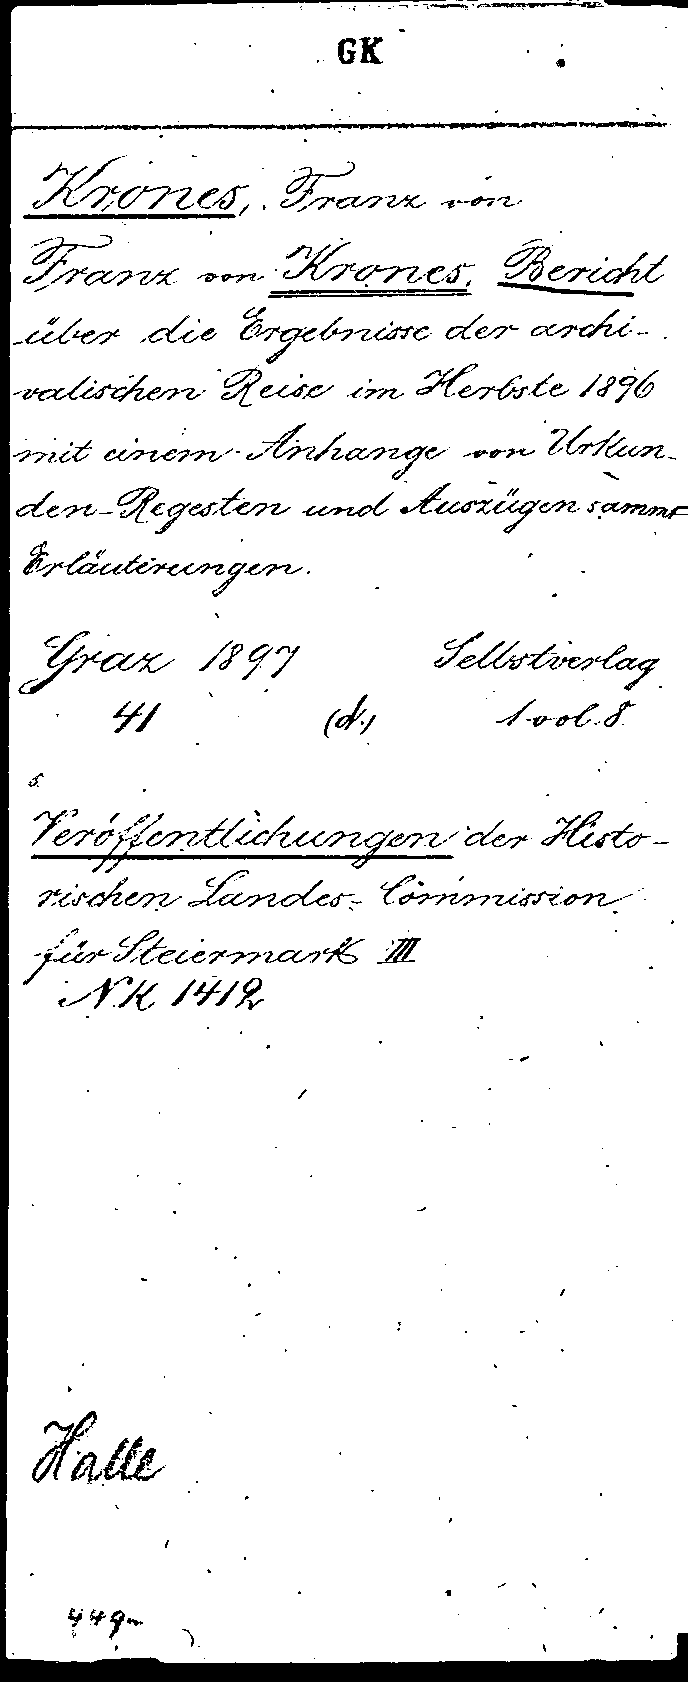 GK
Krones, Franz von
Franz von Krones. Bericht
über die Ergebnisse der archi-
valischen Reise im Herbste 1896
mit einem Anhange von Urkun-
den-Regesten und Auszügen sammt
Erläuterungen.
Graz 1897 Selbstverlag
41 (d.) 1 vol. 8
s.
Veröffentlichungen der Histo-
rischen Landes-Commission
für Steiermark III
NK 1412
Halle